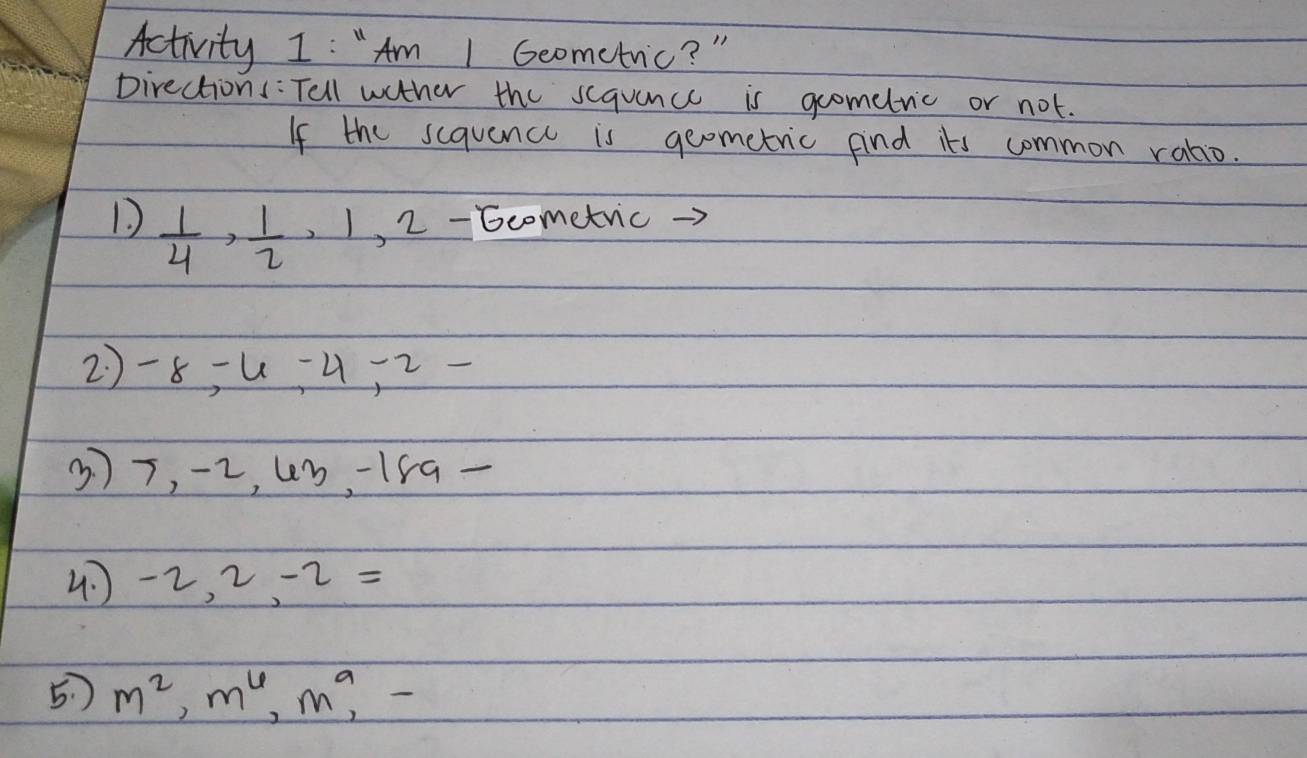 Activity 1: "Am I Geometric?"
Directions: Tell wether the sequence is geometric or not.
If the sequence is geometric find its common ratio.
1.) 1/4, 1/2, 1, 2 - Geometric →
2.) -8, -6, -4, -2 -
3.) 7, -2, 63, -189 -
4.) -2, 2, -2 =
5.) m², m⁶, m⁹, -